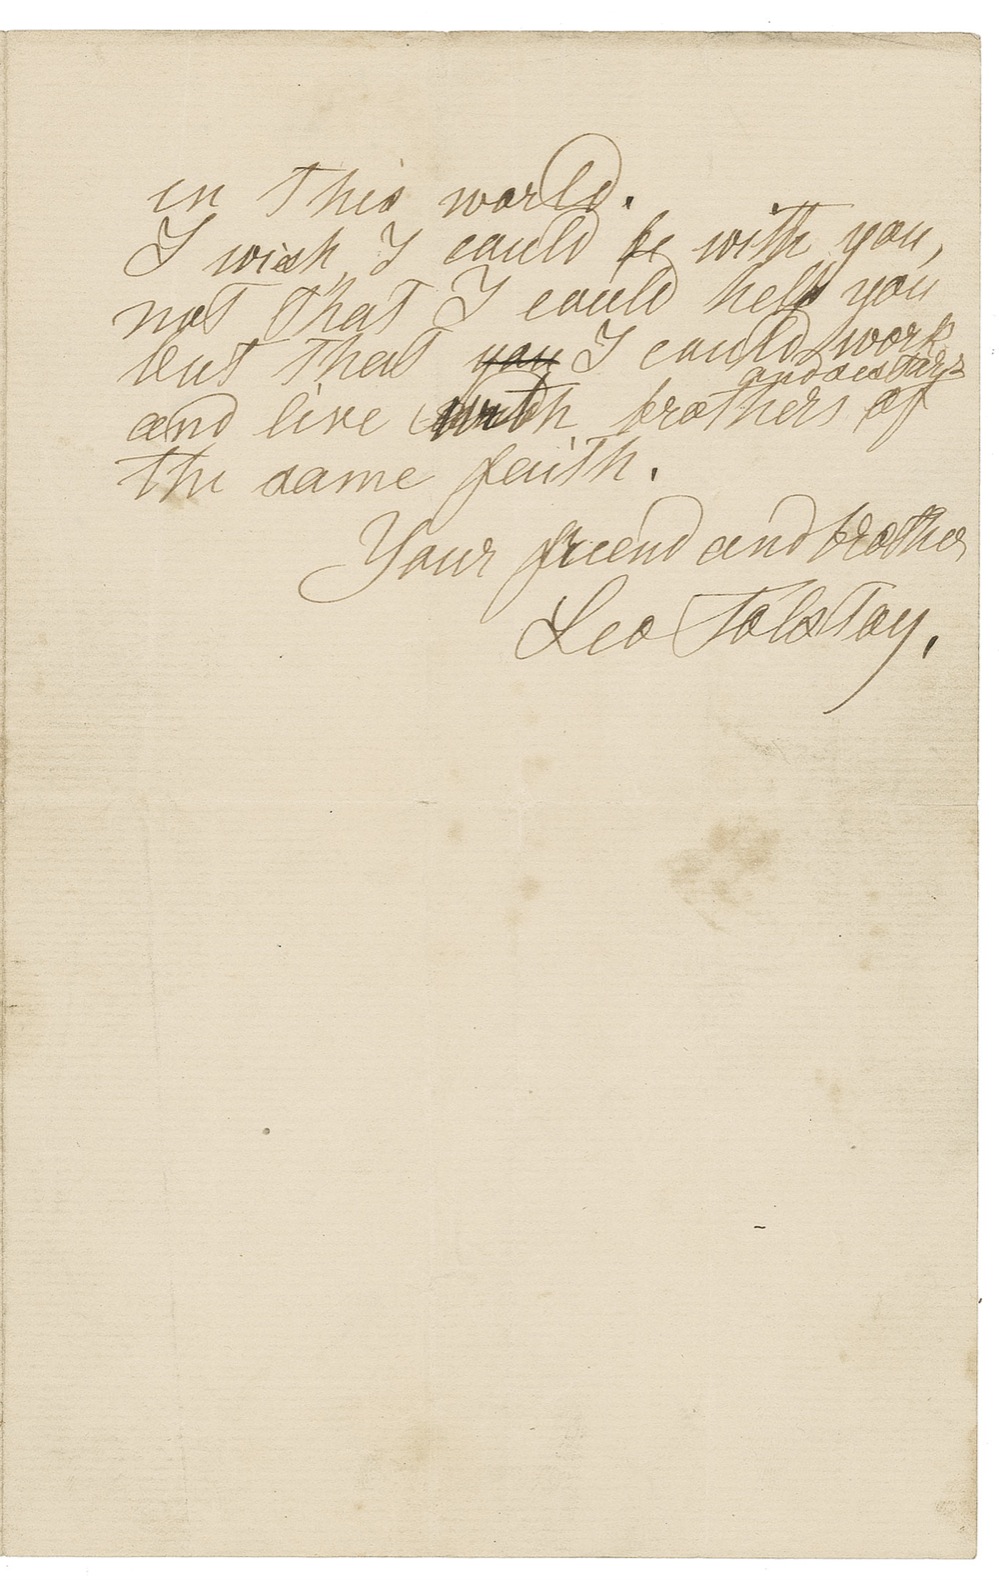 in this world.
I wish I could be with you,
not that I could help you
but that you I could work
and sisters
and live with brothers of
the same faith.
Your friend and brother
Leo Tolstoy.